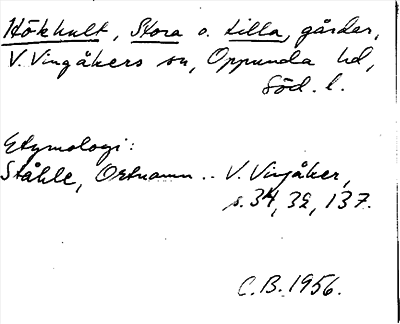 Hökhult, Stora o. Lilla, gårdar,
V. Vingåkers sn, Oppunda hd,
Söd. l.
Etymologi:
Ståhle, Ortnamn .. V. Vingåker,
s. 34, 39, 137.
C.B. 1956.